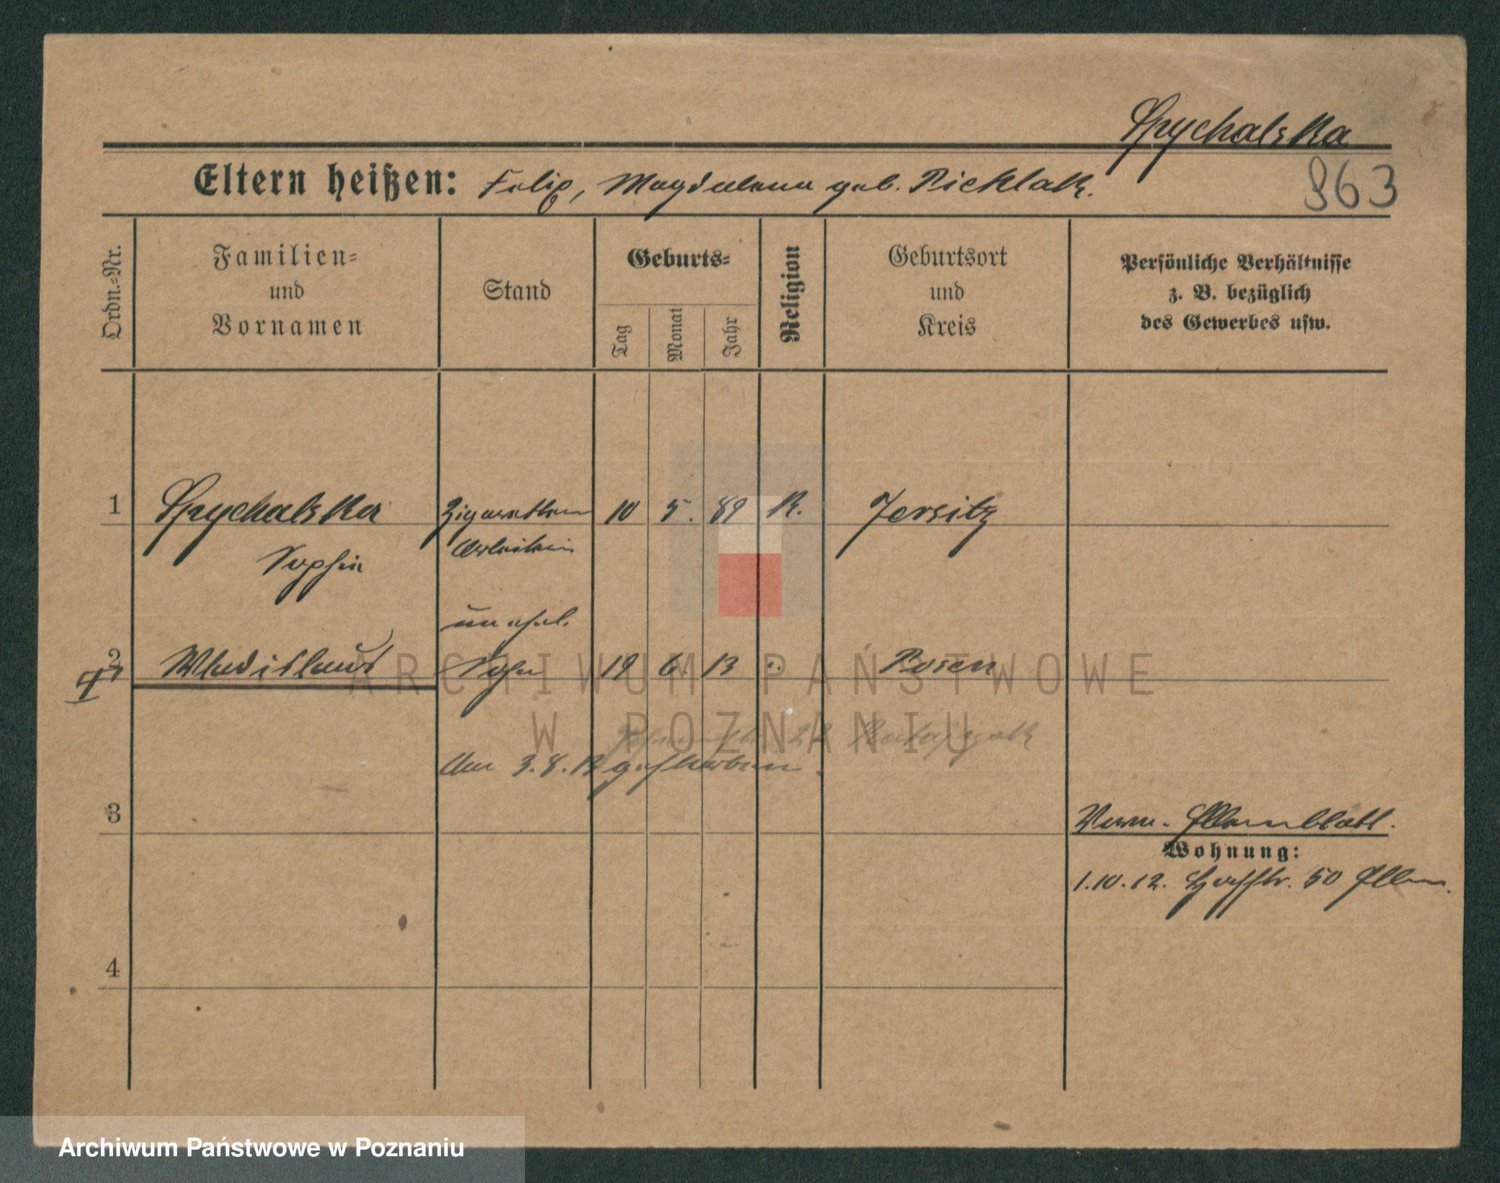 Spychalska
Eltern heißen: Felix, Magdalena geb. Pieklak.
863
Ordn.-Nr.
Familien-
und
Vornamen
Stand
Geburts-
Tag
Monat
Jahr
Religion
Geburtsort
und
Kreis
Persönliche Verhältnisse
z. B. bezüglich
des Gewerbes usw.
1 Spychalska Zigaretten 10 5. 89 K. Jersitz
Sophie Arbeiterin
unehel.
2 Wladislaus Sohn 19 6. 13 Posen
ARCHIWUM PAŃSTWOWE
W POZNANIU
Am 3.8.13 gestorben.
3
Wohnung:
1.10.12. 50
4
Archiwum Państwowe w Poznaniu